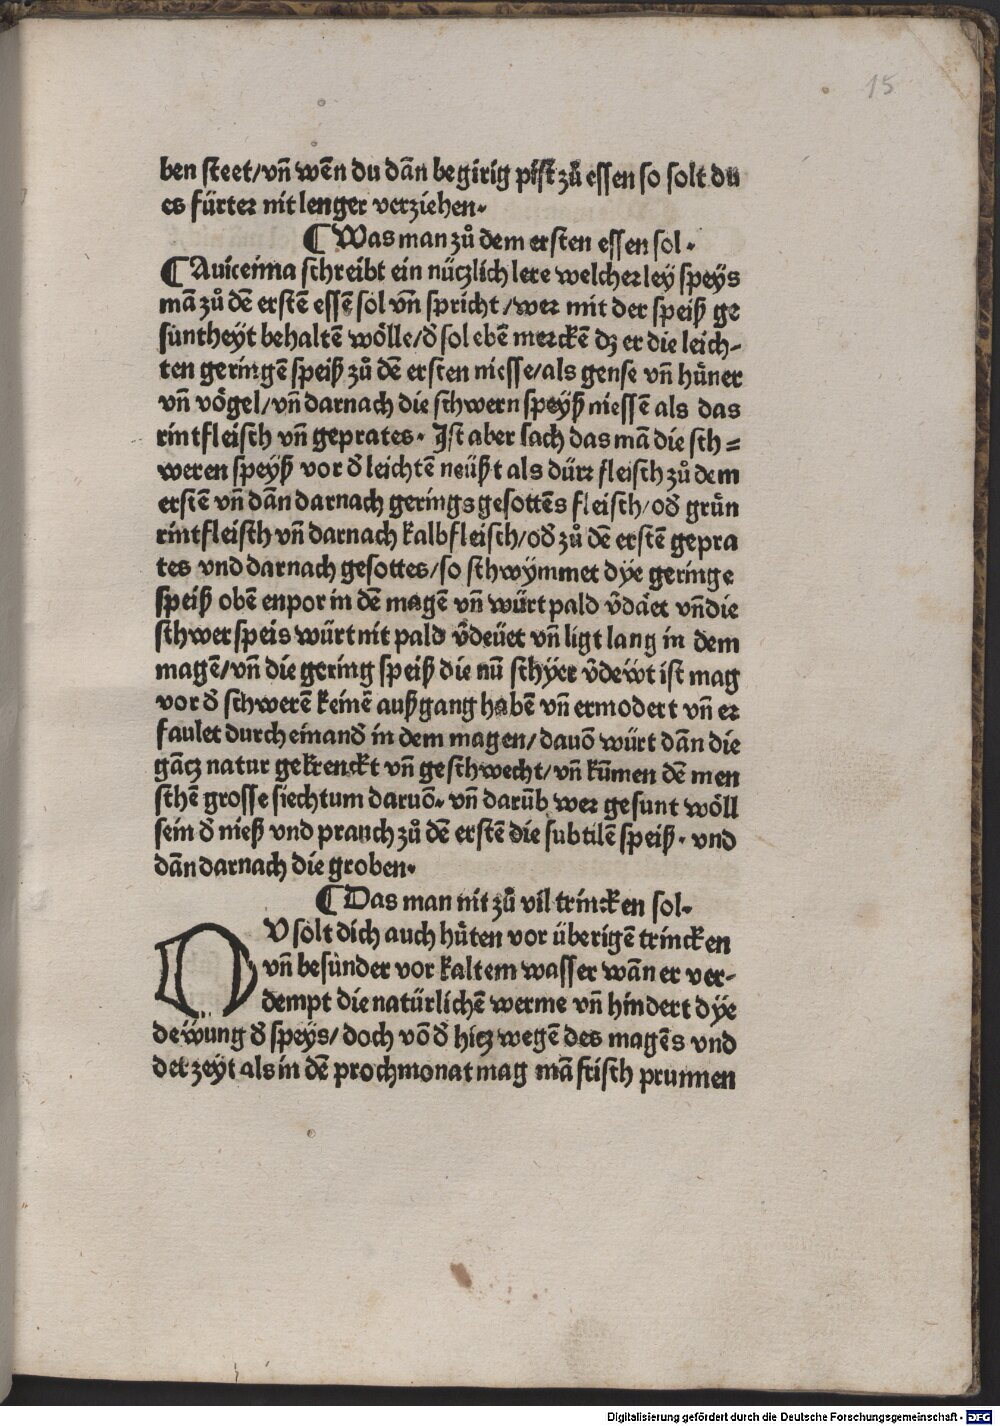 15
ben steet/vñ wen̄ du dan̄ begirig pist zů essen so solt du
es fürter nit lenger verziehen·
¶ Was man zů dem ersten essen sol·
¶ Auicenna schreibt ein nüczlich lere welcherley speys
mā zů dē erstē essē sol vñ spricht/wer mit der speiß ge
suntheyt behaltē wölle/đ sol ebē merckē dz er die leich-
ten geringē speiß zů dē ersten niesse/als gense vñ hüner
vñ vögel/vñ darnach die schwern speyß niessē als das
rintfleisch vñ geprates· Ist aber sach das mā die sch=
weren speyß vor đ leichtē neüßt als dürr fleisch zů dem
erstē vñ dan̄ darnach gerings gesottēs fleisch/ođ grün
rintfleisch vñ darnach kalbfleisch/ođ zů dē erstē gepra
tes vnd darnach gesottes/so schwymmet dye geringe
speiß obē enpor in dē magē vñ würt pald v̄däet vñ die
schwer speis würt nit pald v̄deüet vñ ligt lang in dem
magē/vñ die gering speiß die nū schyer v̄dewt ist mag
vor đ schwerē keinē außgang habē vñ ermodert vñ er
faulet durch einanđ in dem magen/dauō würt dan̄ die
gācz natur gekrenckt vñ geschwecht/vñ kūmen dē men
schē grosse siechtum daruō· vñ darūb wer gesunt wöll
sein đ nieß vnd prauch zů dē erstē die subtilē speiß· vnd
dan̄ darnach die groben·
¶ Das man nit zů vil trincken sol·
DV solt dich auch hüten vor überigē trincken
vñ besunder vor kaltem wasser wan̄ er ver-
dempt die natürlichē werme vñ hindert dye
deẅung đ speys/doch vō đ hicz wegē des magēs vnd
der zeyt als in dē prochmonat mag mā frisch prunnen
Digitalisierung gefördert durch die Deutsche Forschungsgemeinschaft - DFG